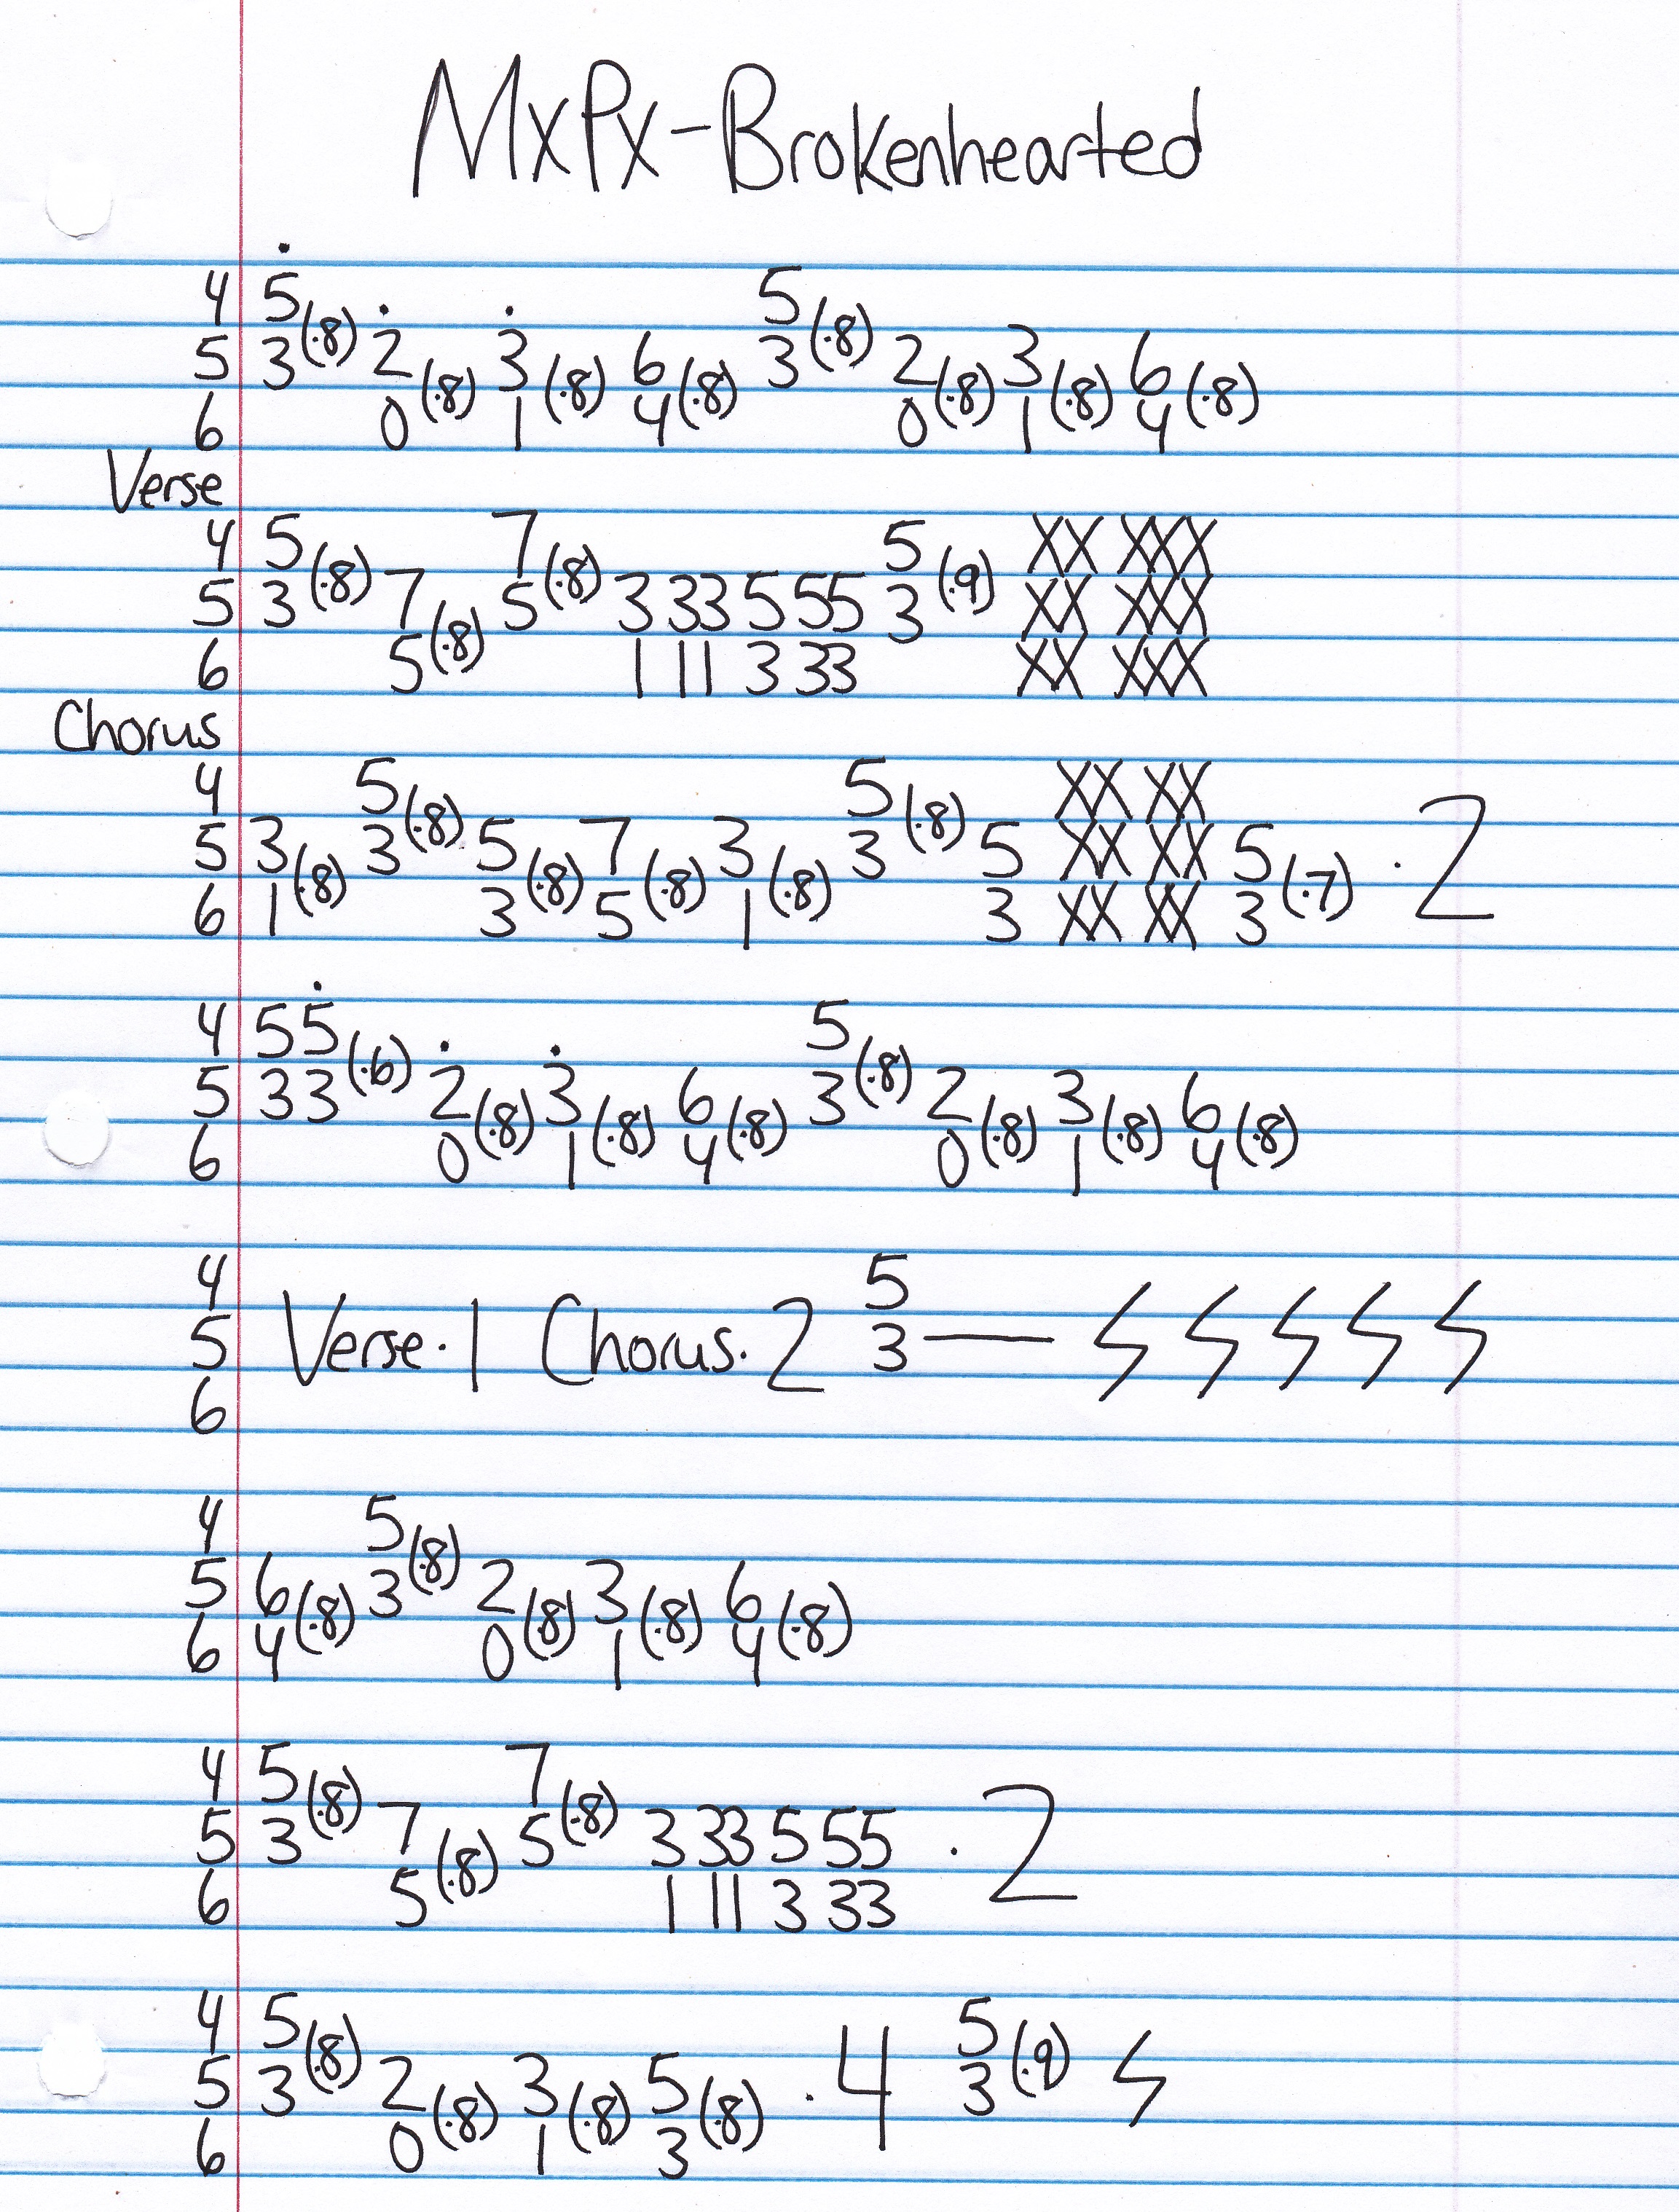 MxPx-Brokenhearted
4 5(.8) 5(.8)
5 3 2(.8) 3(.8) 6(.8) 3 2(.8) 3(.8) 6(.8)
6 0 1 4 0 1 4
Verse
4 5(.8) 7(.8) 5(.9) XX XXX
5 3 7(.8) 5 3 33 5 55 3 XX XXX
6 5 1 11 3 33 XX XXX
Chorus
4 5(.8) 5(.8) XX XX
5 3(.8) 3 5(.8) 7(.8) 3(.8) 3 5 XX XX 5(.7) . 2
6 1 3 5 1 3 XX XX 3
4 55(.6) 5(.8)
5 33 2(.8) 3(.8) 6(.8) 3 2(.8) 3(.8) 6(.8)
6 0 1 4 0 1 4
4 5
5 Verse.1 Chorus.2 3
6
4 5(.8)
5 6(.8) 3 2(.8) 3(.8) 6(.8)
6 4 0 1 4
4 5(.8) 7(.8)
5 3 7(.8) 5 3 33 5 55 . 2
6 5 1 11 3 33
4 5(.8) 5(.9)
5 3 2(.8) 3(.8) 5(.8) . 4 3
6 0 1 3